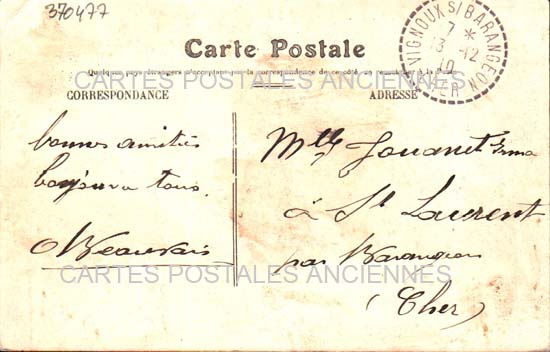 370477
VIGNOUX S/ BARANGEON
7 *
13 -12
10
CHER
Carte Postale
Quelques pays étrangers n'acceptent pas la correspondance de ce côté, se renseigner à la Poste
CARTES POSTALES ANCIENNES
CORRESPONDANCE
ADRESSE
bonnes amitiés
bonjour a tous.
Beauvais
Mlle Jouanet Irma
à St Laurent
par Barangeon
(Cher)
CARTES POSTALES ANCIENNES